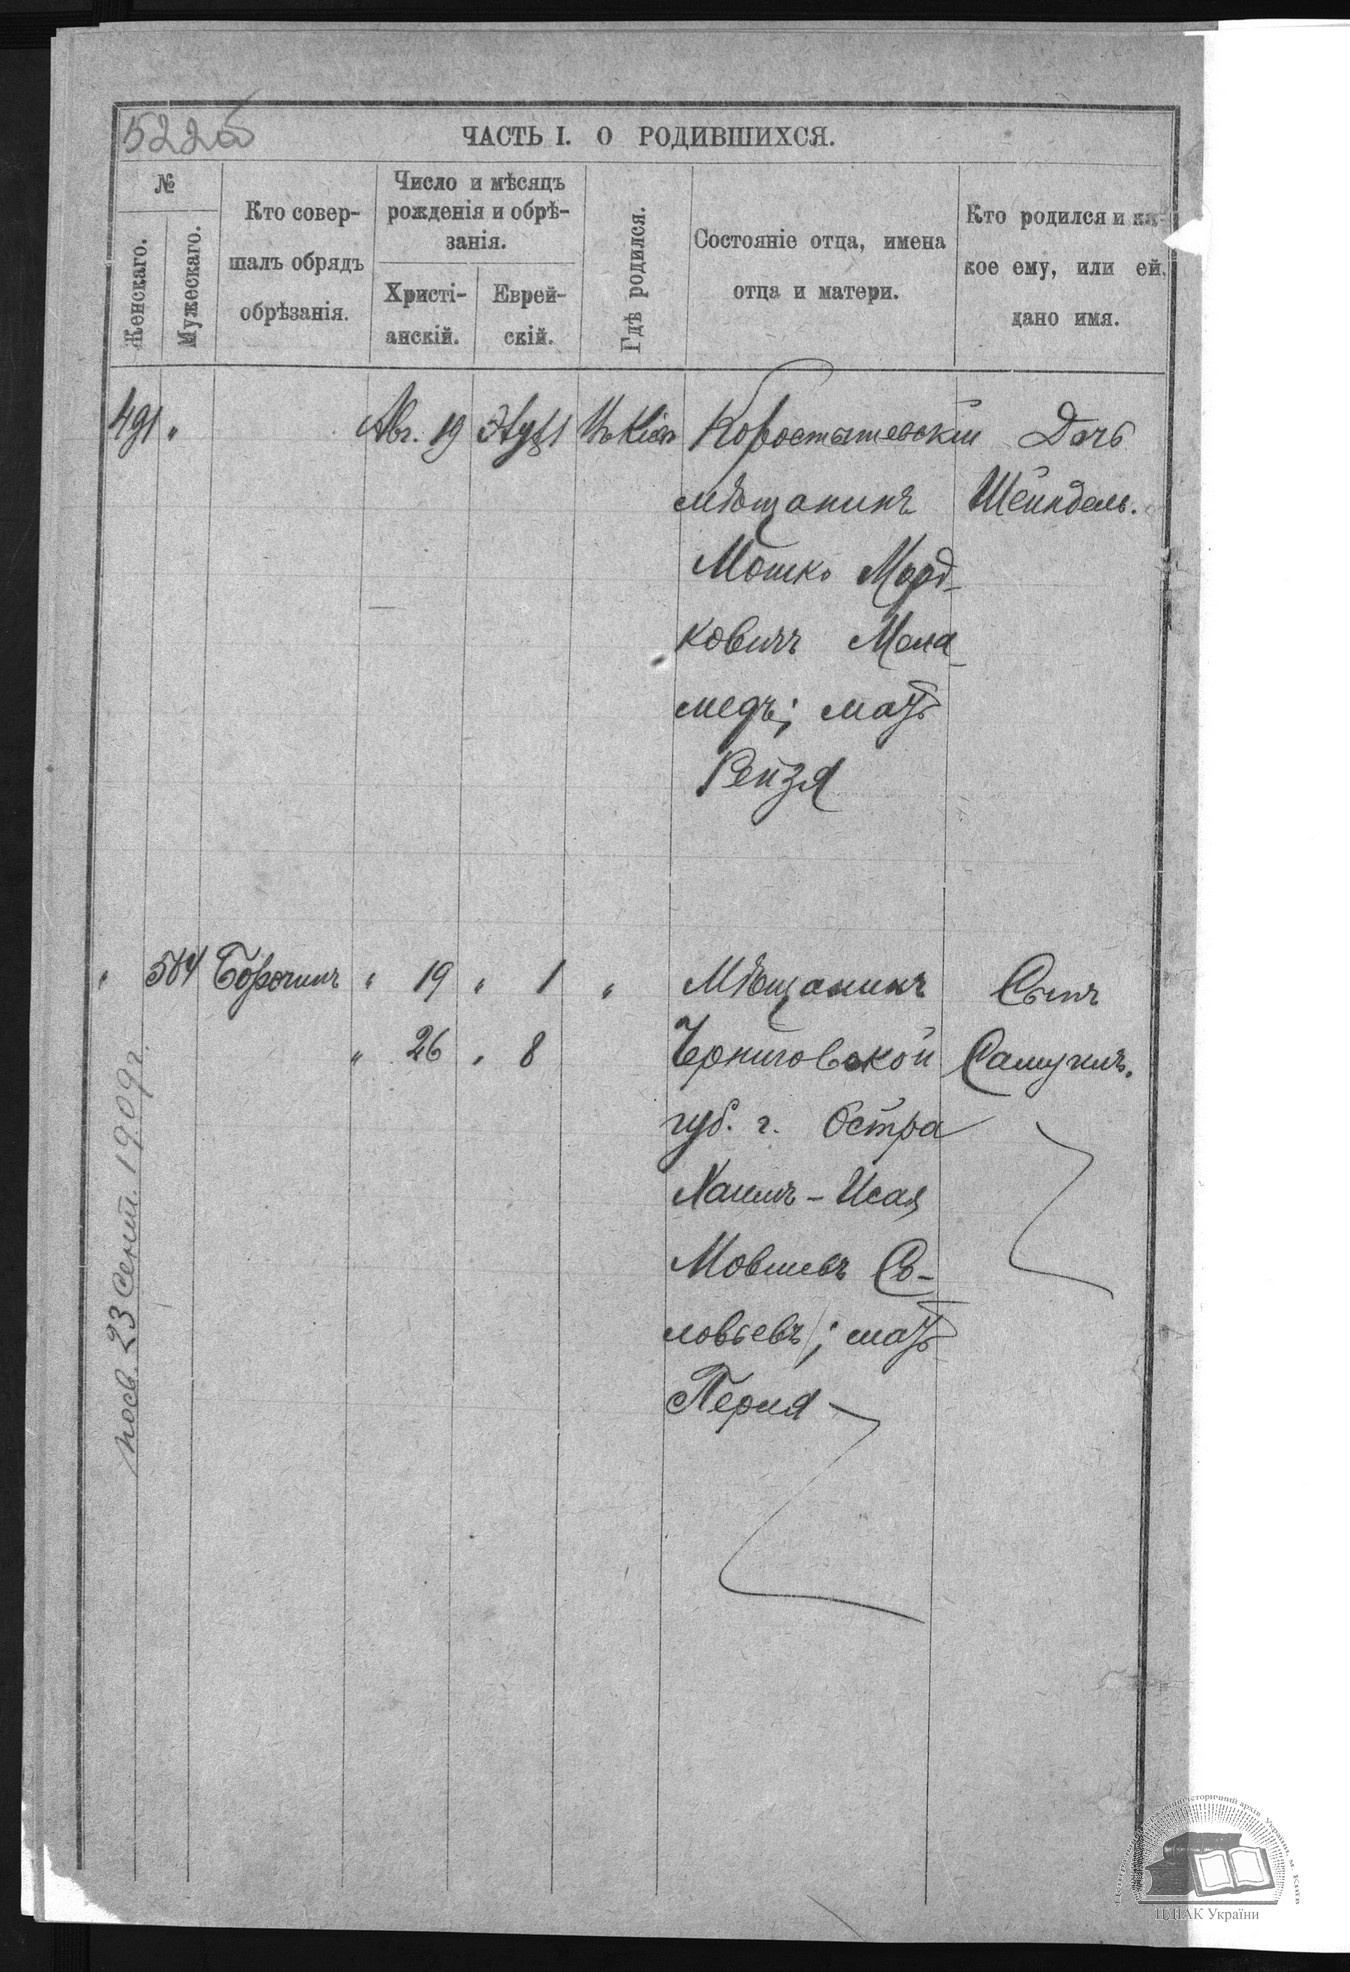 522об
ЧАСТЬ I. О РОДИВШИХСЯ.
№
Женскаго.
Мужескаго.
Кто совер-
шалъ обрядъ
обрѣзанія.
Число и мѣсяцъ
рожденія и обрѣ-
занія.
Христі-
анскій.
Еврей-
скій.
Гдѣ родился.
Состояніе отца, имена
отца и матери.
Кто родился и ка-
кое ему, или ей,
дано имя.
491 " Авг. 19 1 Въ Кіевѣ Коростышевскій Дочь
мѣщанинъ Шейндель.
Мошко Морд-
ковичъ Мела-
медъ; мать
Рейзя
" 504 " 19 " 1 " Мѣщанинъ Сынъ
" 26 " 8 Черниговской Самуилъ.
губ. г. Остра
Хаимъ-Исая
Мовшевъ Со-
ловьевъ; мать
Перля
23 Сент. 1909 г.
ЦДІАК України